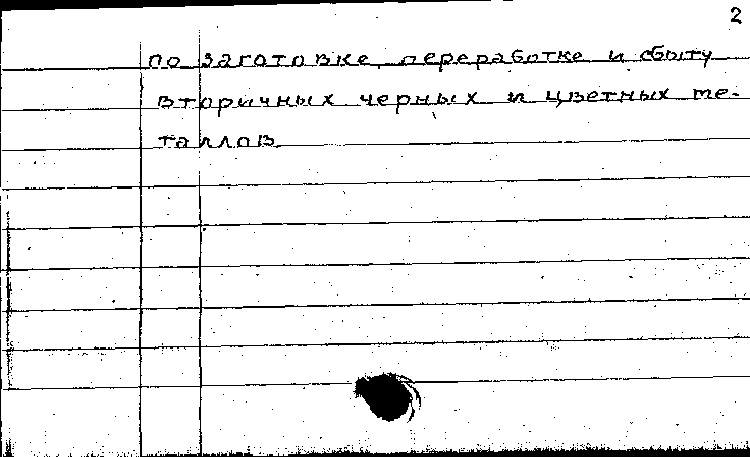 2
по заготовке, переработке и сбыту
вторичных черных и цветных ме-
таллов